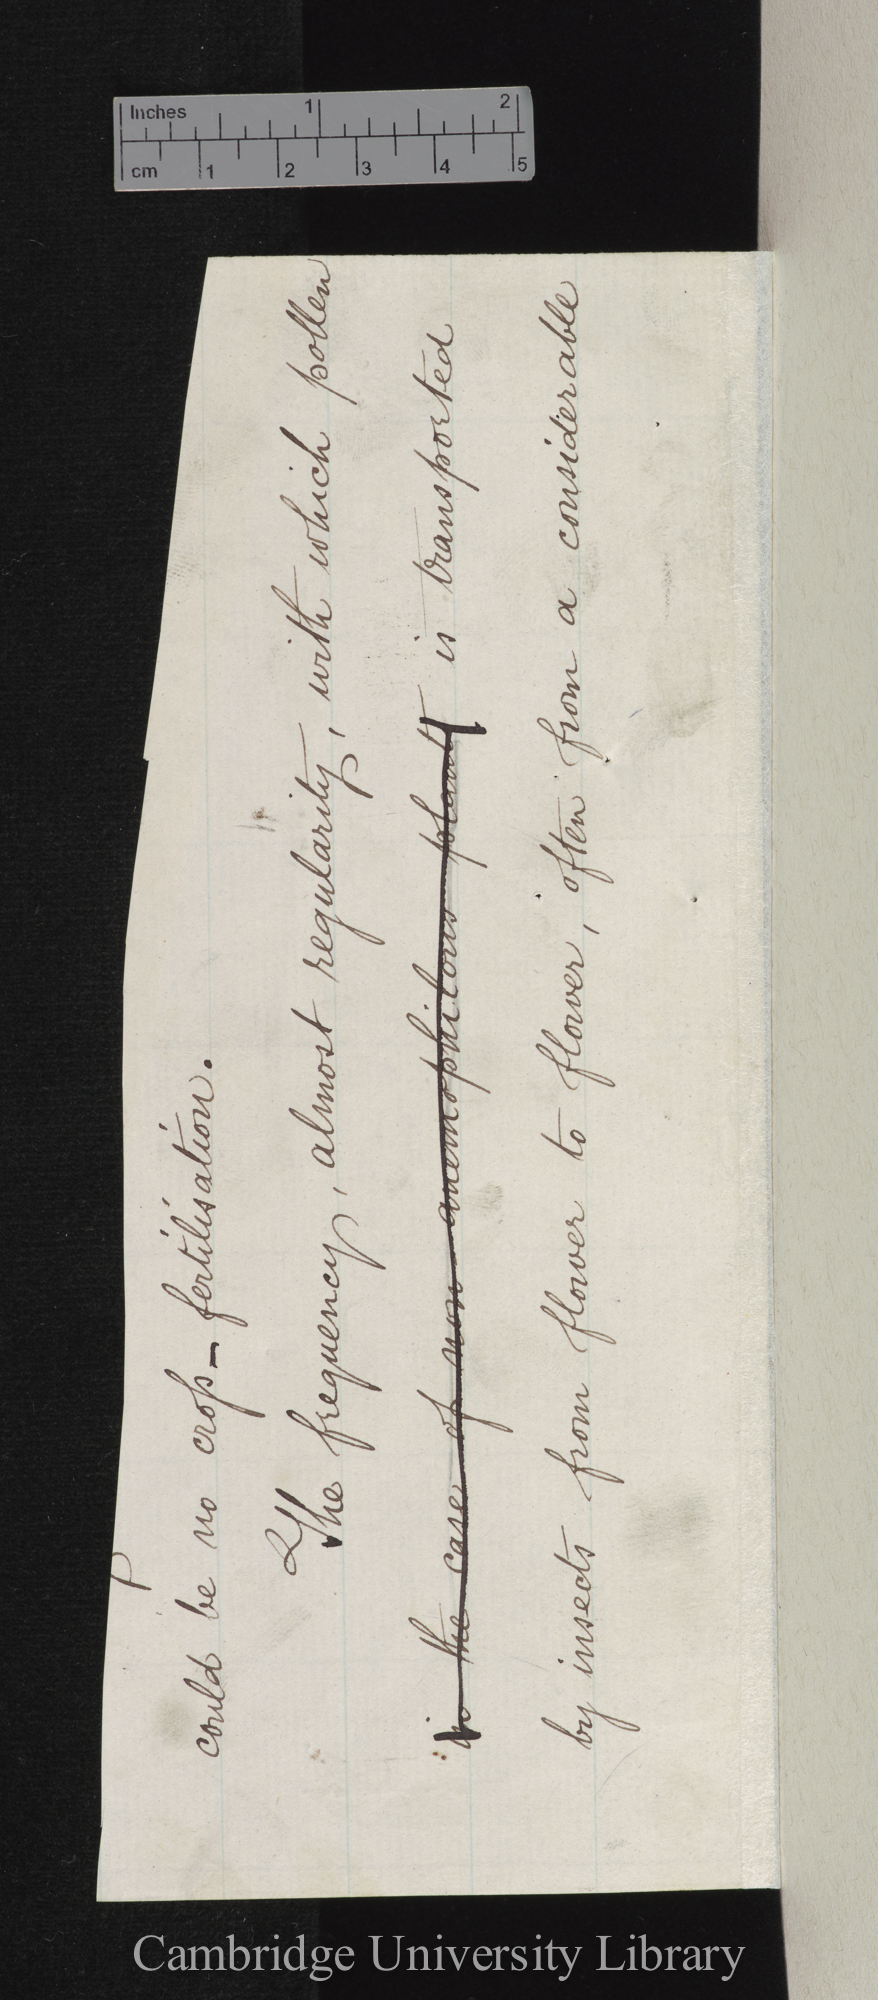 Inches 1 2
cm 1 2 3 4 5
could be no cross-fertilisation.
The frequency, almost regularity, with which pollen
in the case of non-anemophilous plants is transported
by insects from flower to flower, often from a considerable
Cambridge University Library